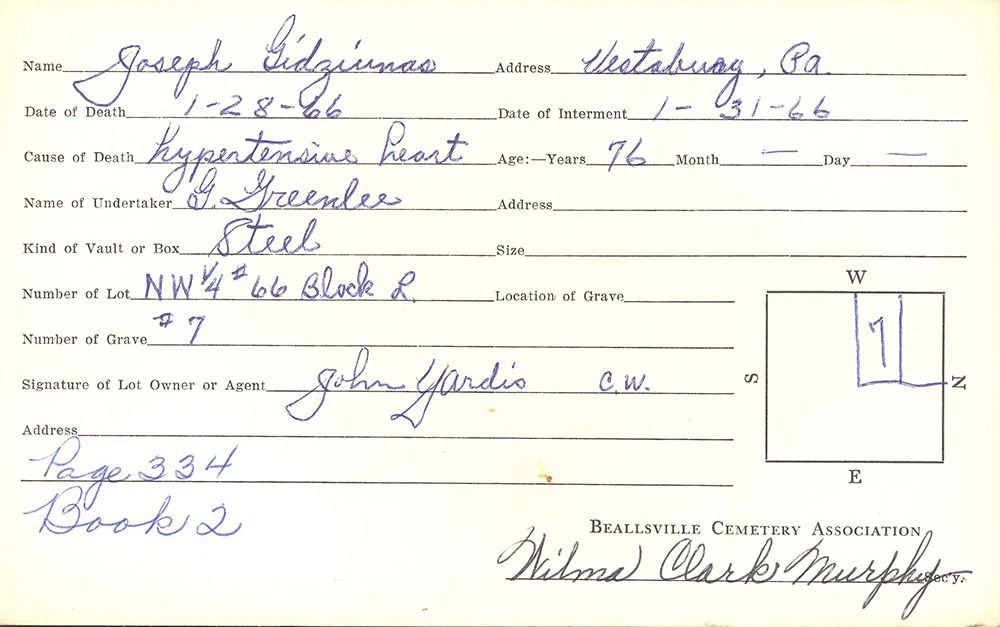 Name Joseph Gidziunas Address Vestaburg, Pa.
Date of Death 1-28-66 Date of Interment 1-31-66
Cause of Death hypertensive heart Age:—Years 76 Month — Day —
Name of Undertaker G. Greenlee Address
Kind of Vault or Box Steel Size
Number of Lot NW 1/4 # 66 Block L. Location of Grave
Number of Grave # 7
Signature of Lot Owner or Agent John Yardis C.W.
Address
Page 334
Book 2
W
S 7 N
E
BEALLSVILLE CEMETERY ASSOCIATION
Wilma Clark Murphy Sec'y.